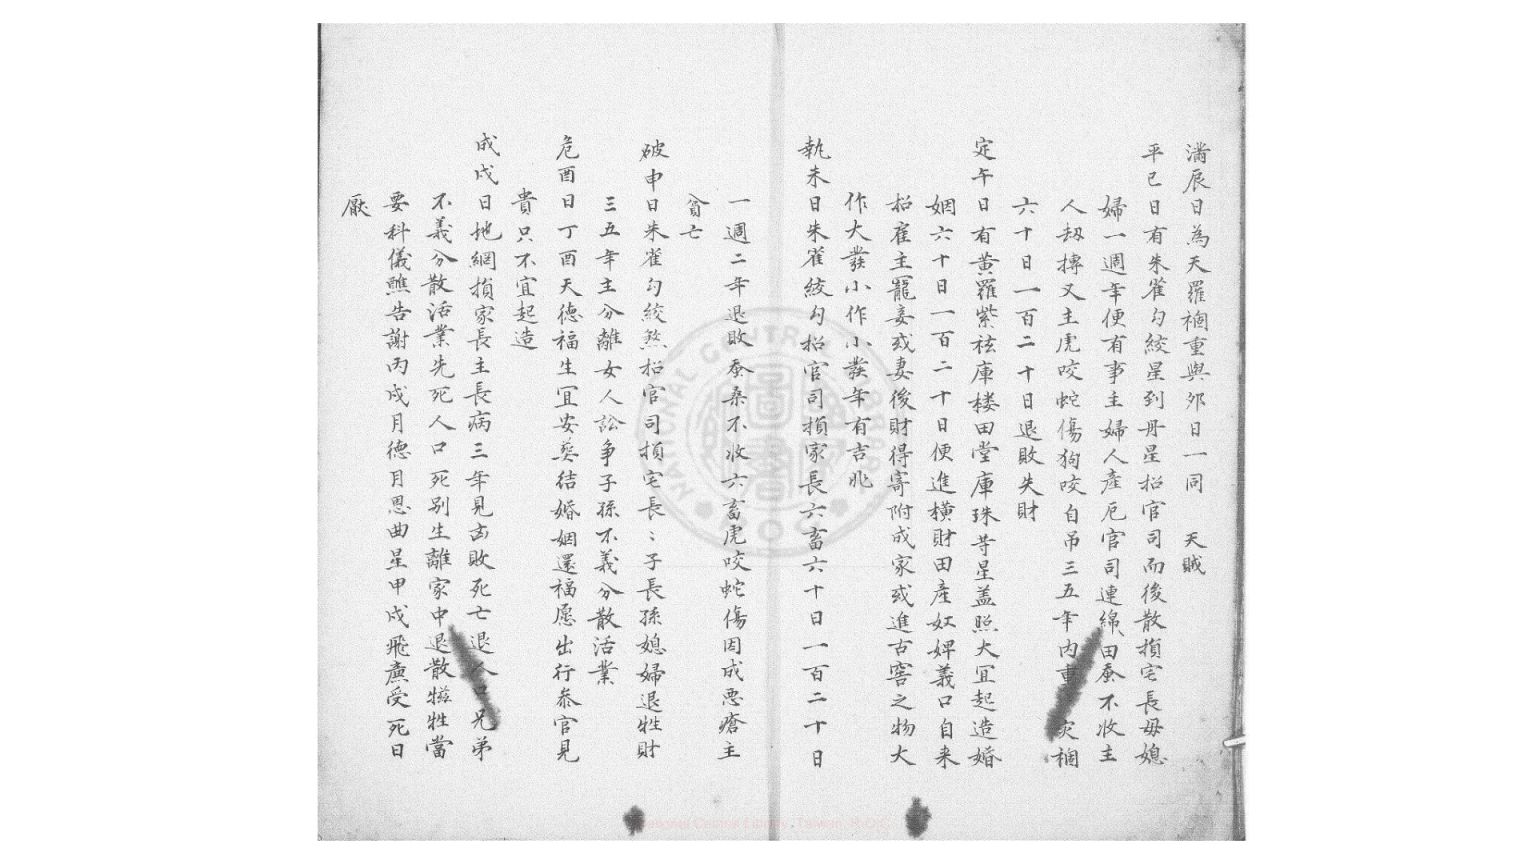 滿辰日為天羅禍重與夘日一同　天賊
平巳日有朱雀勾絞星到丹星招官司而後散損宅長母媳
婦一週年便有事主婦人產厄官司連綿田蚕不收主
人劫摶又主虎咬蛇傷狗咬自吊三五年內重灾禍
六十日一百二十日退敗失財
定午日有黃羅紫袨庫楼田堂庫珠䓁星盖照大冝起造婚
姻六十日一百二十日便進橫財田產奴婢義口自来
招雇主寵妾或妻後財得寄附成家或進古窖之物大
作大發小作小發年有吉兆
執未日朱雀絞勾招官司損家長六畜六十日一百二十日
一週二年退敗蚕桑不收六畜虎咬蛇傷因成惡瘡主
貧亡
破申日朱雀勾絞煞招官司損宅長〻子長孫媳婦退牲財
三五年主分離女人訟爭子孫不義分散活業
危酉日丁酉天德福生冝安𦵏结婚姻還福愿出行叅官見
貴只不宜起造
成戌日地網損家長主長病三年見凶敗死亡退人口兄弟
不義分散活業先死人口死別生離家中退散犧牲當
要科儀醮告謝丙戌月德月恩曲星甲戌飛廉受死日
厭
National Central Library, Taiwan, R.O.C
NATIONAL CENTRAL LIBRARY
R.O.C
圖書